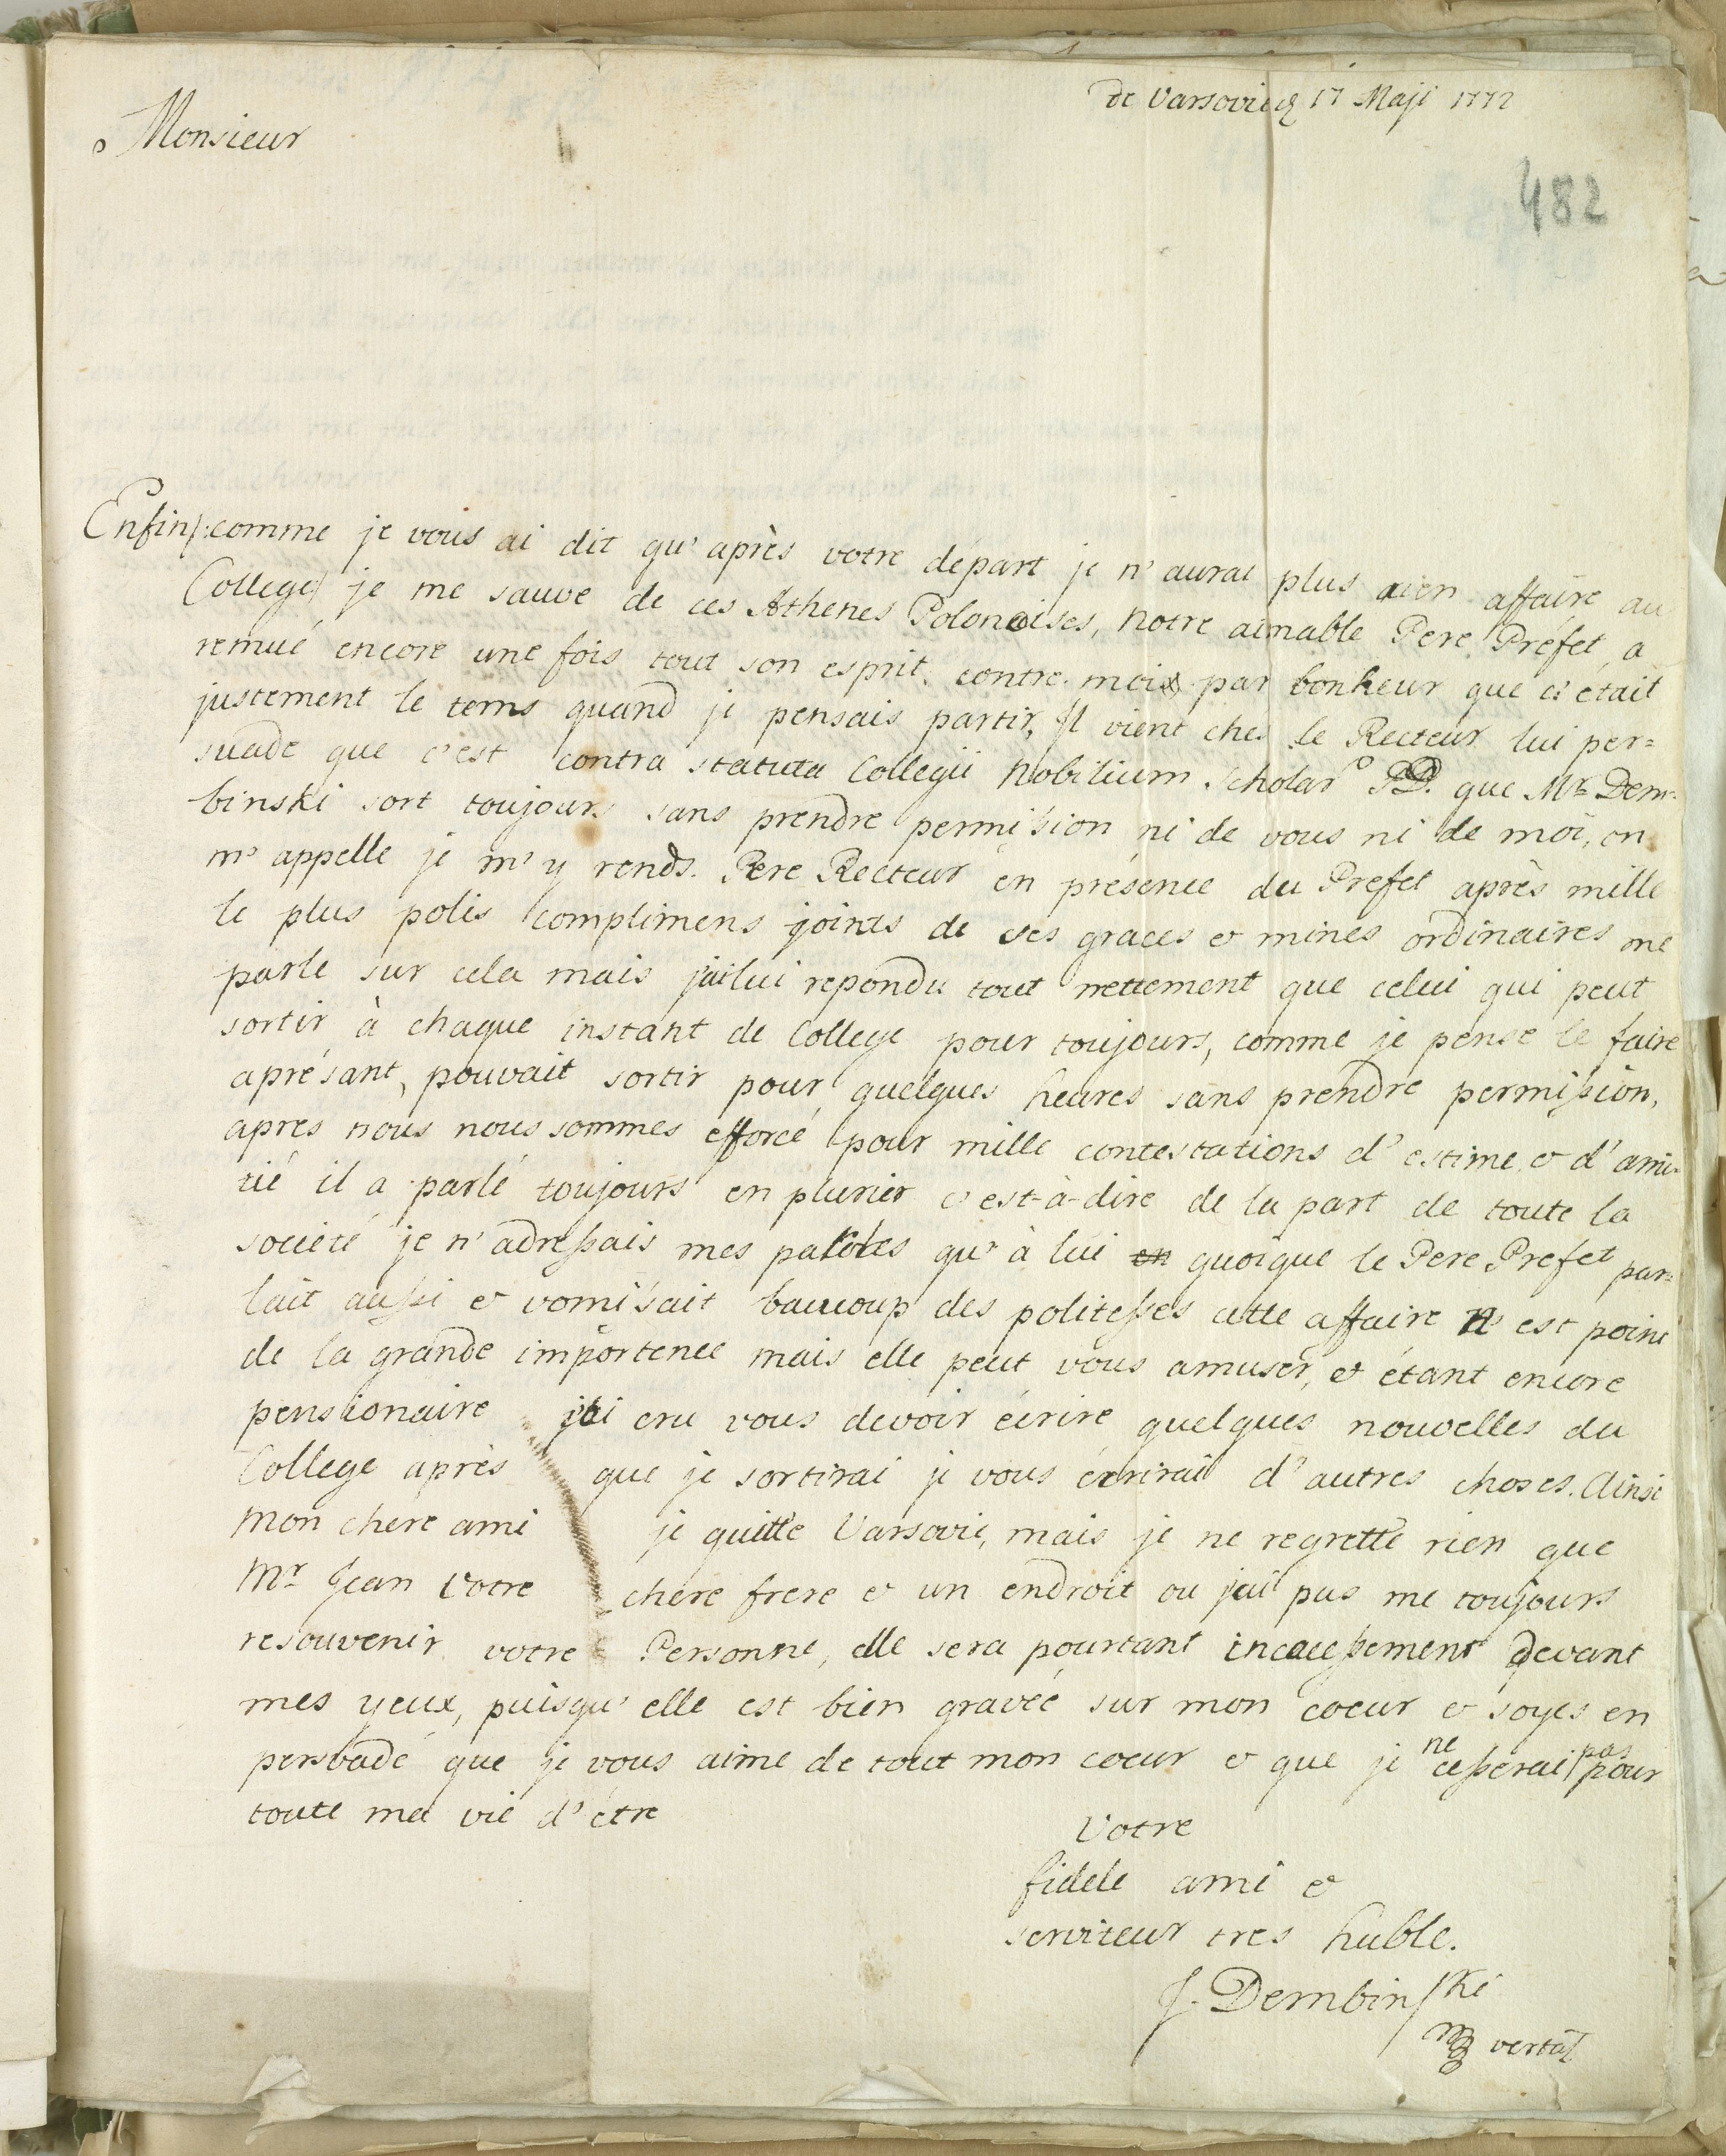 de Varsovie d 17 Maji 1772
Monsieur
482
Enfin /:comme je vous ai dit qu'après votre départ je n'aurai plus rien affaire au
College/ je me sauve de ces Athenes Polonoises, notre aimable Pere Préfet, a
remué encore une fois tout son esprit contre moi & par bonheur que c'etait
justement le tems quand je pensais partir, Il vient ches le Recteur lui per=
suade que c'est contra statuta Collegii Nobilium Scholar PD. que Mr Dem=
binski sort toujours sans prendre permission ni de vous ni de moi, on
m'appelle je m'y rends. Pere Recteur en présence du Prefet après mille
le plus polis complimens joints de ses graces et mines ordinaires me
parle sur cela mais j'ai lui repondu tout nettement que celui qui peut
sortir à chaque instant de College pour toujours, comme je pense le faire
aprésant, pouvait sortir pour quelques heures sans prendre permission,
apres nous nous sommes efforcé pour mille contestations d'estime et d'ami-
tié il a parlé toujours en plurier c'est-à-dire de la part de toute la
société je n'adressais mes paroles qu'à lui en quoique le Pere Prefet par=
lait aussi et vomisait baucoup des politesses cette affaire n'est point
de la grande importence mais elle peut vous amuser, et étant encore
pensionaire j'ai cru vous devoir écrire quelques nouvelles du
College après que je sortirai je vous écrirai d'autres choses. Ainsi
mon chere ami je quitte Varsovie, mais je ne regrette rien que
Mr Jean votre chere frere et un endroit ou j'ai pus me toujours
resouvenir votre Personne, elle sera pourtant incessement devant
mes yeux, puisqu'elle est bien gravée sur mon coeur et soyes en
persvadé que je vous aime de tout mon coeur et que je ne cesserai pas pour
toute ma vie d'être
Votre
fidele ami et
serviteur tres huble.
J. Dembinski
verta